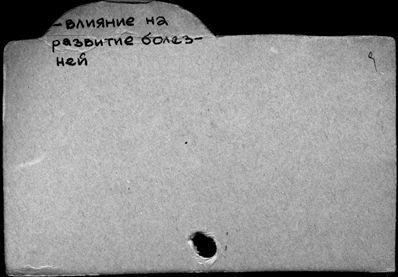 -влияние на
развитие болез-
ней